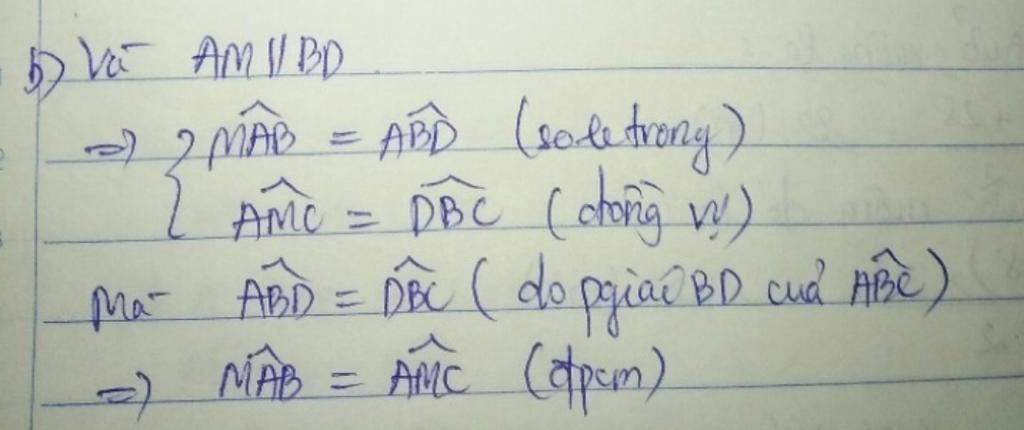 b) Vì AM // BD
=> { \widehat{MAB} = \widehat{ABD} (so le trong)
\widehat{AMC} = \widehat{DBC} (đồng vị)
Mà \widehat{ABD} = \widehat{DBC} (do pgiác BD của \widehat{ABC})
=> \widehat{MAB} = \widehat{AMC} (đpcm)